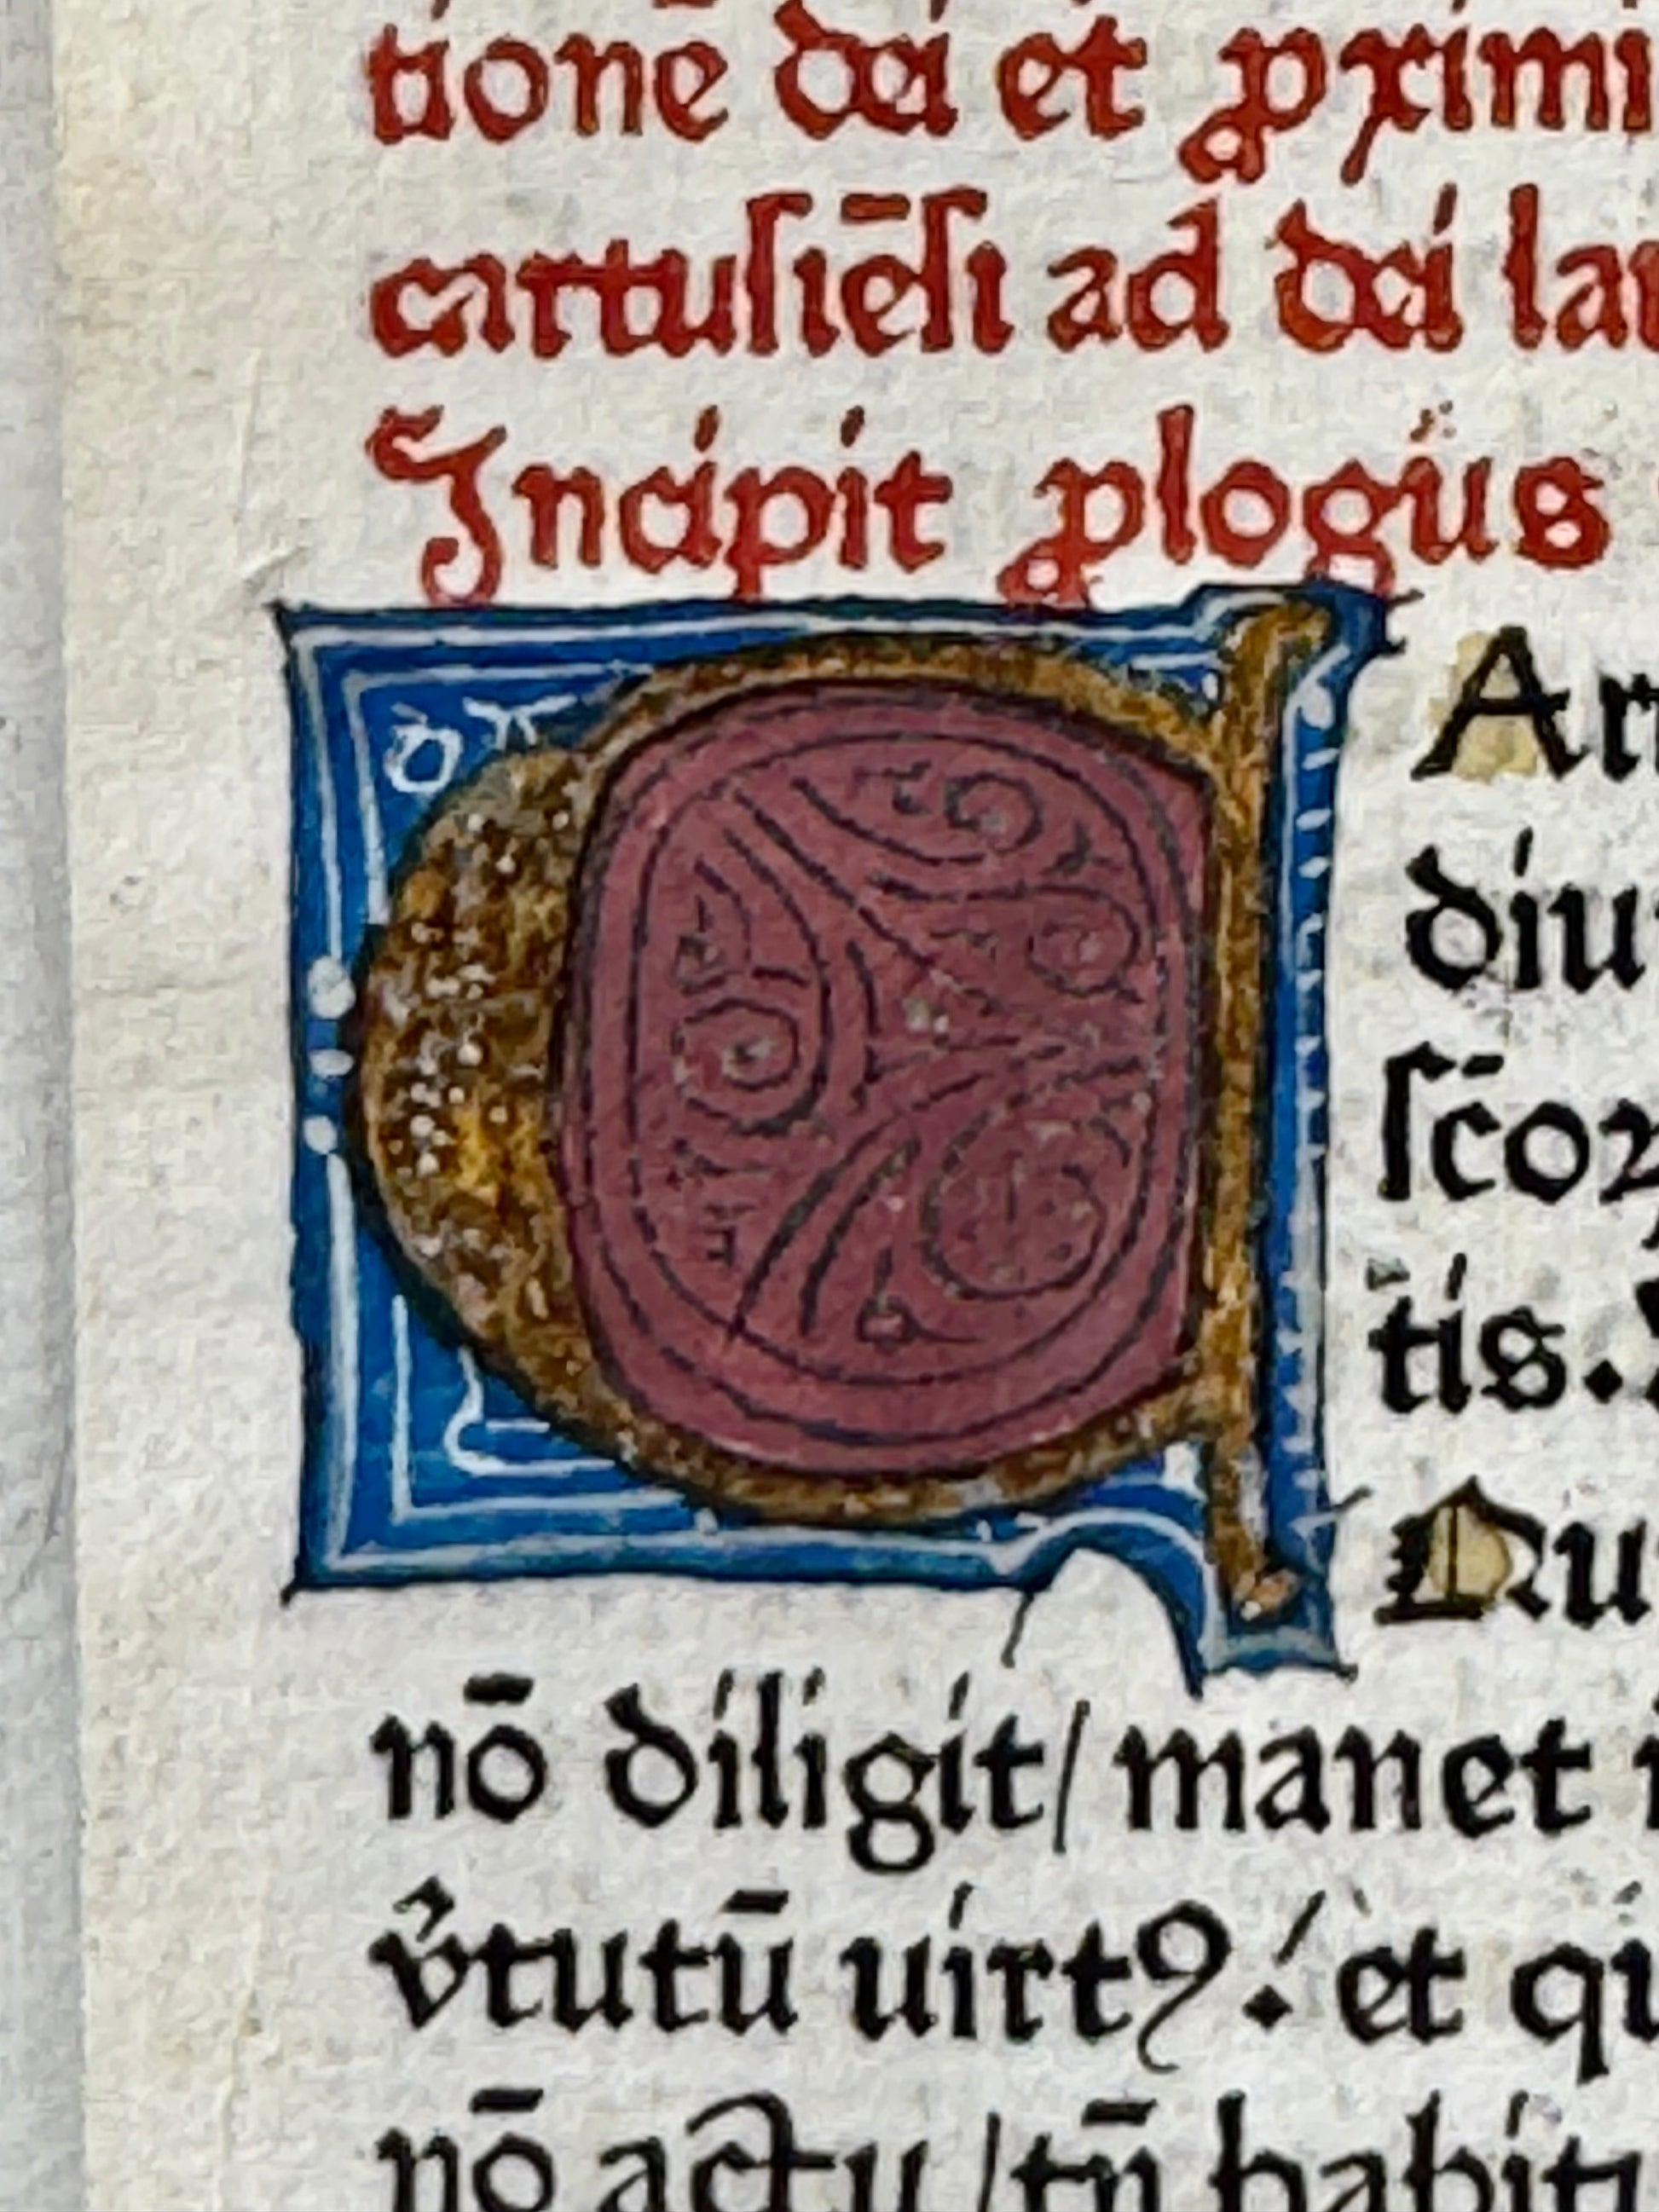 tionē dei et ꝓximi
cartusiēsi ad dei lau
Incipit ꝓlogus
CAri
diui
sc̄oꝝ
tis.
Qui
nō diligit/ manet i
v̓tutū uirtꝰ:/ et qui
nō actu /tn̄ habitu